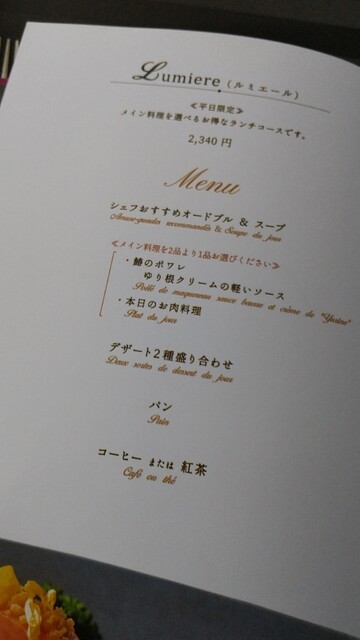 Lumiere (ルミエール)
≪平日限定≫
メイン料理を選べるお得なランチコースです。
2,340 円
Menu
シェフおすすめオードブル & スープ
Amuse-gueules recommandés & Soupe du jour
≪メイン料理を2品より1品お選びください≫
・鰆のポワレ
ゆり根クリームの軽いソース
Poêlé de maquereau sauce basse et crème de "Yurine"
・本日のお肉料理
Plat du jour
デザート2種盛り合わせ
Deux sortes de dessert du jour
パン
Pain
コーヒー または 紅茶
Café ou thé